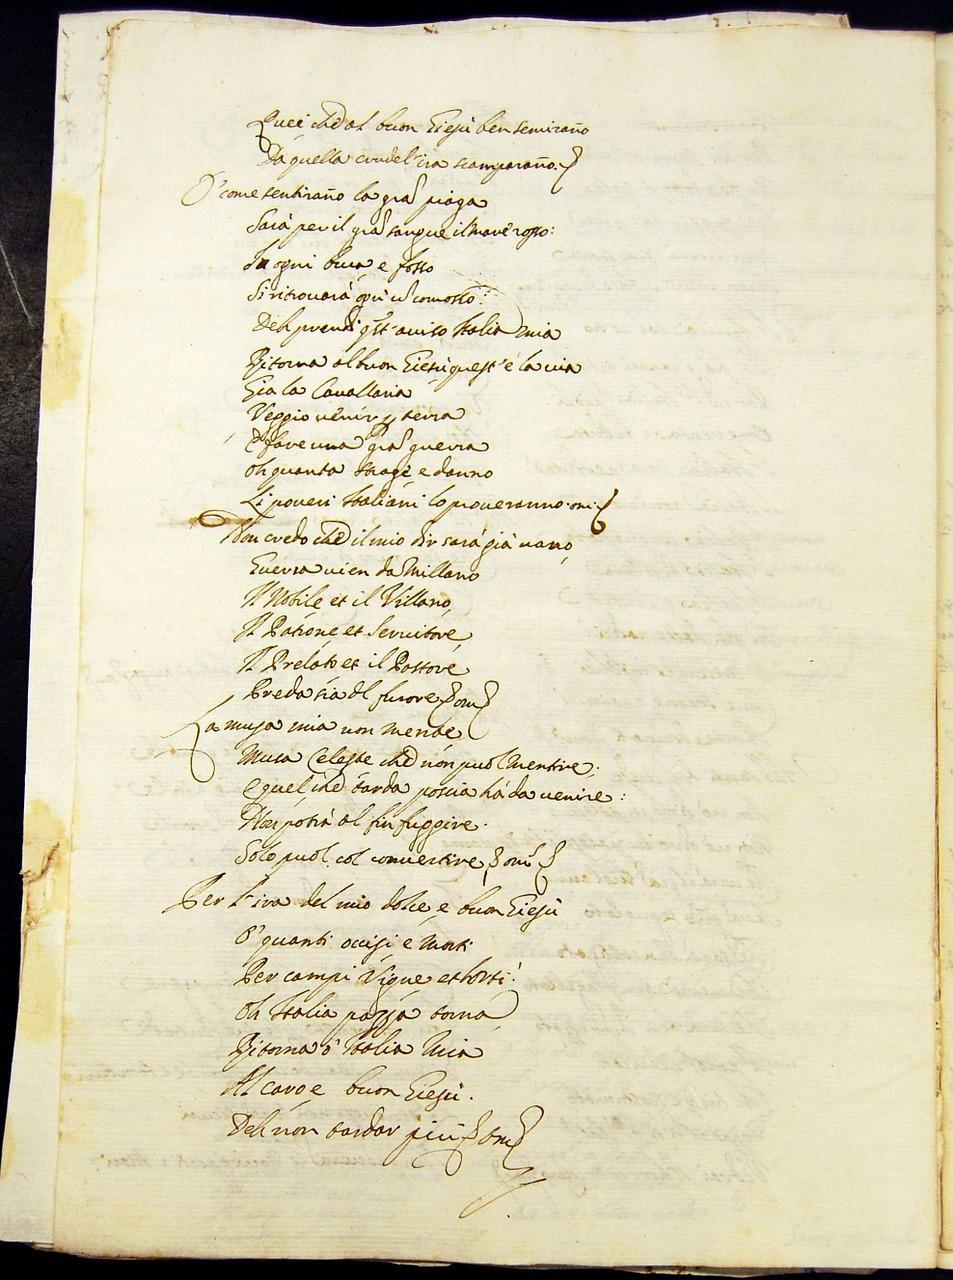 Quei che al buon Giesù ben semiraño
Da quella crudel'ira scamparaño.
O' come sentiraño la gra piaga
Sarà per il gra sangue il mare rosso:
In ogni buca e fosso
Si ritrouarà
Deh prendi qst'auiso Italia mia
Ritorna al buon Giesù quest'è la uia
Gia la Cauallaria
Veggio uenir p terra
E fare una gra guerra
Oh quanta strage e danno
Li poueri Italiani lo proueranno
Non credo che il mio dir sarà già uano
Guerra uien da Millano
Il Nobile et il Villano
Il Patrone et Seruitore
Il Prelato et il Pastore
Preda sia dl furore
La musa mia non mente
Musa Celeste che non puol mentire;
e quel che tarda poscia hà da uenire:
Non potrà al fin fuggire.
Solo puol col conuertire
Per l'ira del mio dolce e buon Giesù
O' quanti occisi e Morti
Per campi Vigne et horti
Oh Italia pazza torna
Ritorna ò Italia Mia
Al caro e buon Giesù.
Deh non tardar più